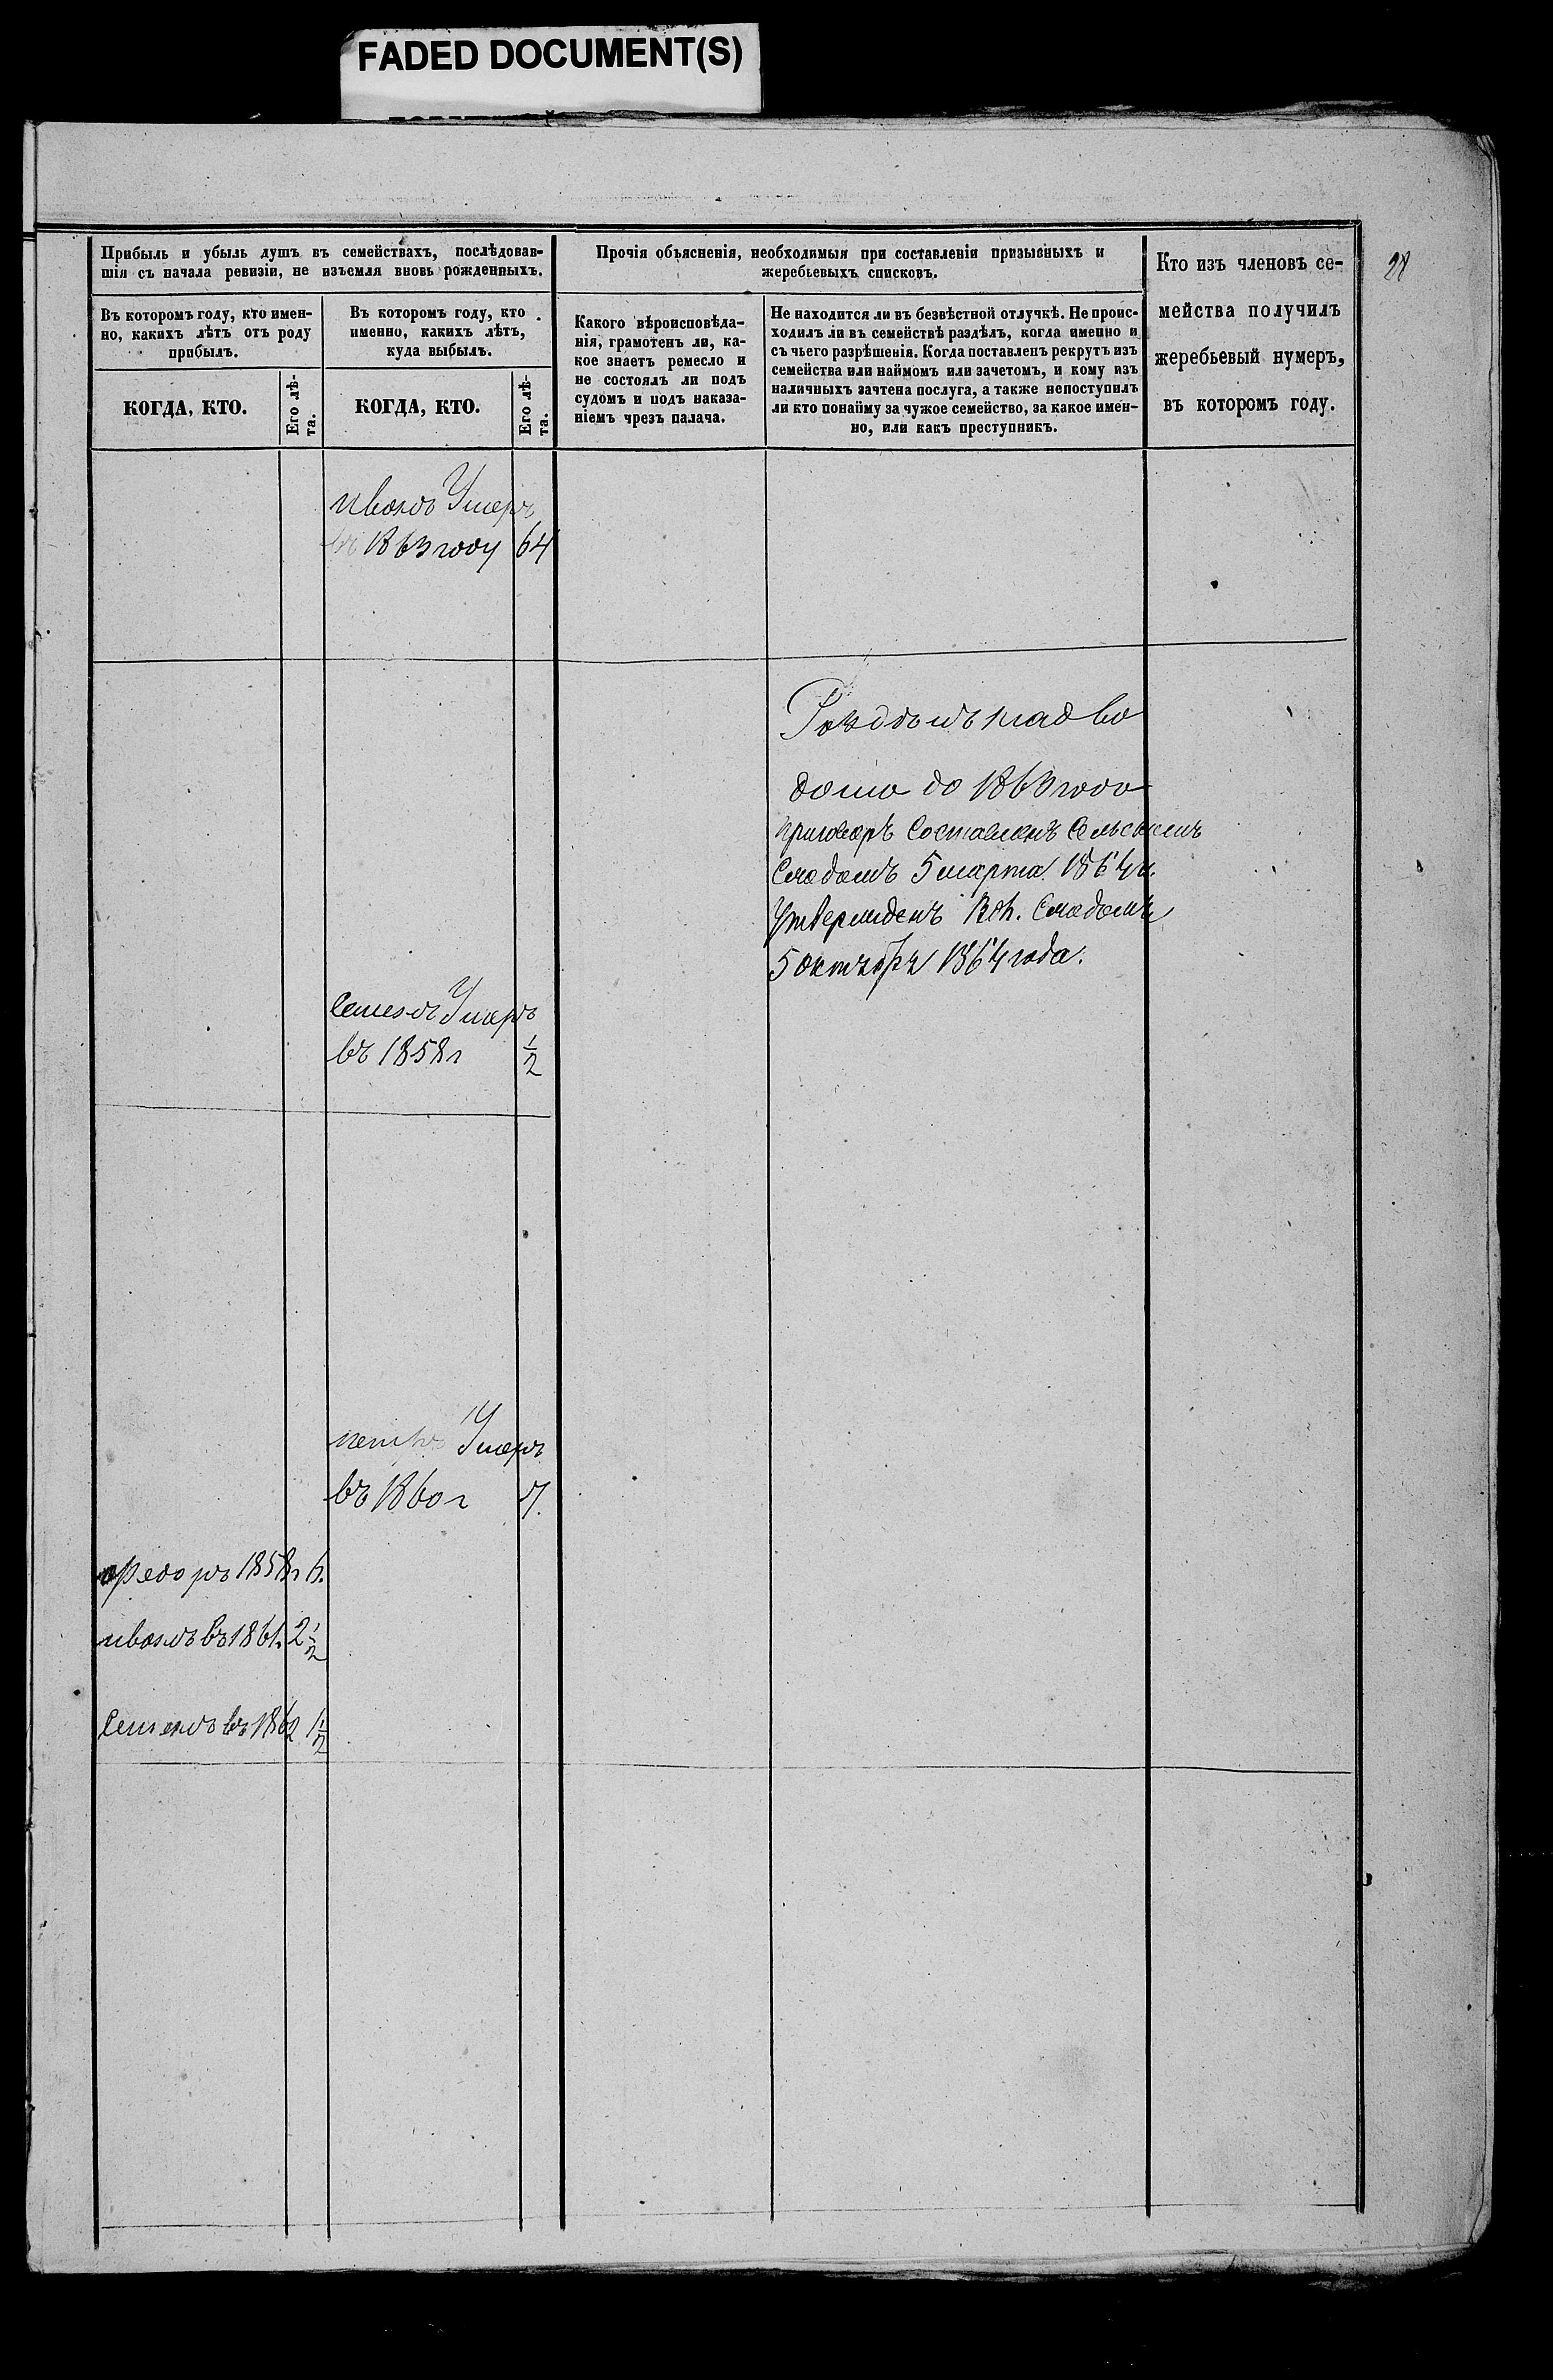 FADED DOCUMENT(S)
Прибыль и убыль душъ въ семействахъ, послѣдовав-
шія съ начала ревизіи, не изъемля вновь рожденныхъ.
Прочія объясненія, необходимыя при составленіи призывныхъ и
жеребьевыхъ списковъ.
Кто изъ членовъ се-
мейства получилъ
жеребьевый нумеръ,
въ которомъ году.
Въ которомъ году, кто имен-
но, какихъ лѣтъ отъ роду
прибылъ.
Въ которомъ году, кто
именно, какихъ лѣтъ,
куда выбылъ.
Какого вѣроисповѣда-
нія, грамотенъ ли, ка-
кое знаетъ ремесло и
не состоялъ ли подъ
судомъ и подъ наказа-
ніемъ чрезъ палача.
Не находится ли въ безвѣстной отлучкѣ. Не проис-
ходилъ ли въ семействѣ раздѣлъ, когда именно и
съ чьего разрѣшенія. Когда поставленъ рекрутъ изъ
семейства или наймомъ или зачетомъ, и кому изъ
наличныхъ зачтена послуга, а также непоступилъ
ли кто понайму за чужое семейство, за какое имен-
но, или какъ преступникъ.
КОГДА, КТО.
Его лѣ-
та.
КОГДА, КТО.
Его лѣ-
та.
иванъ Умеръ
въ 1863 году 64
до 1863 года
приговоръ Составленъ Сельскимъ
Сходомъ 5 марта 1864 г.
Утвержденъ Вол. Сходомъ
5 октября 1864 года.
Семенъ Умеръ
въ 1858 г 1/2
петръ Умеръ
въ 1860 г 7.
ѳедоръ 1858 г 6.
иванъ въ 1861. 2 1/2
Семенъ въ 1862 1 1/2